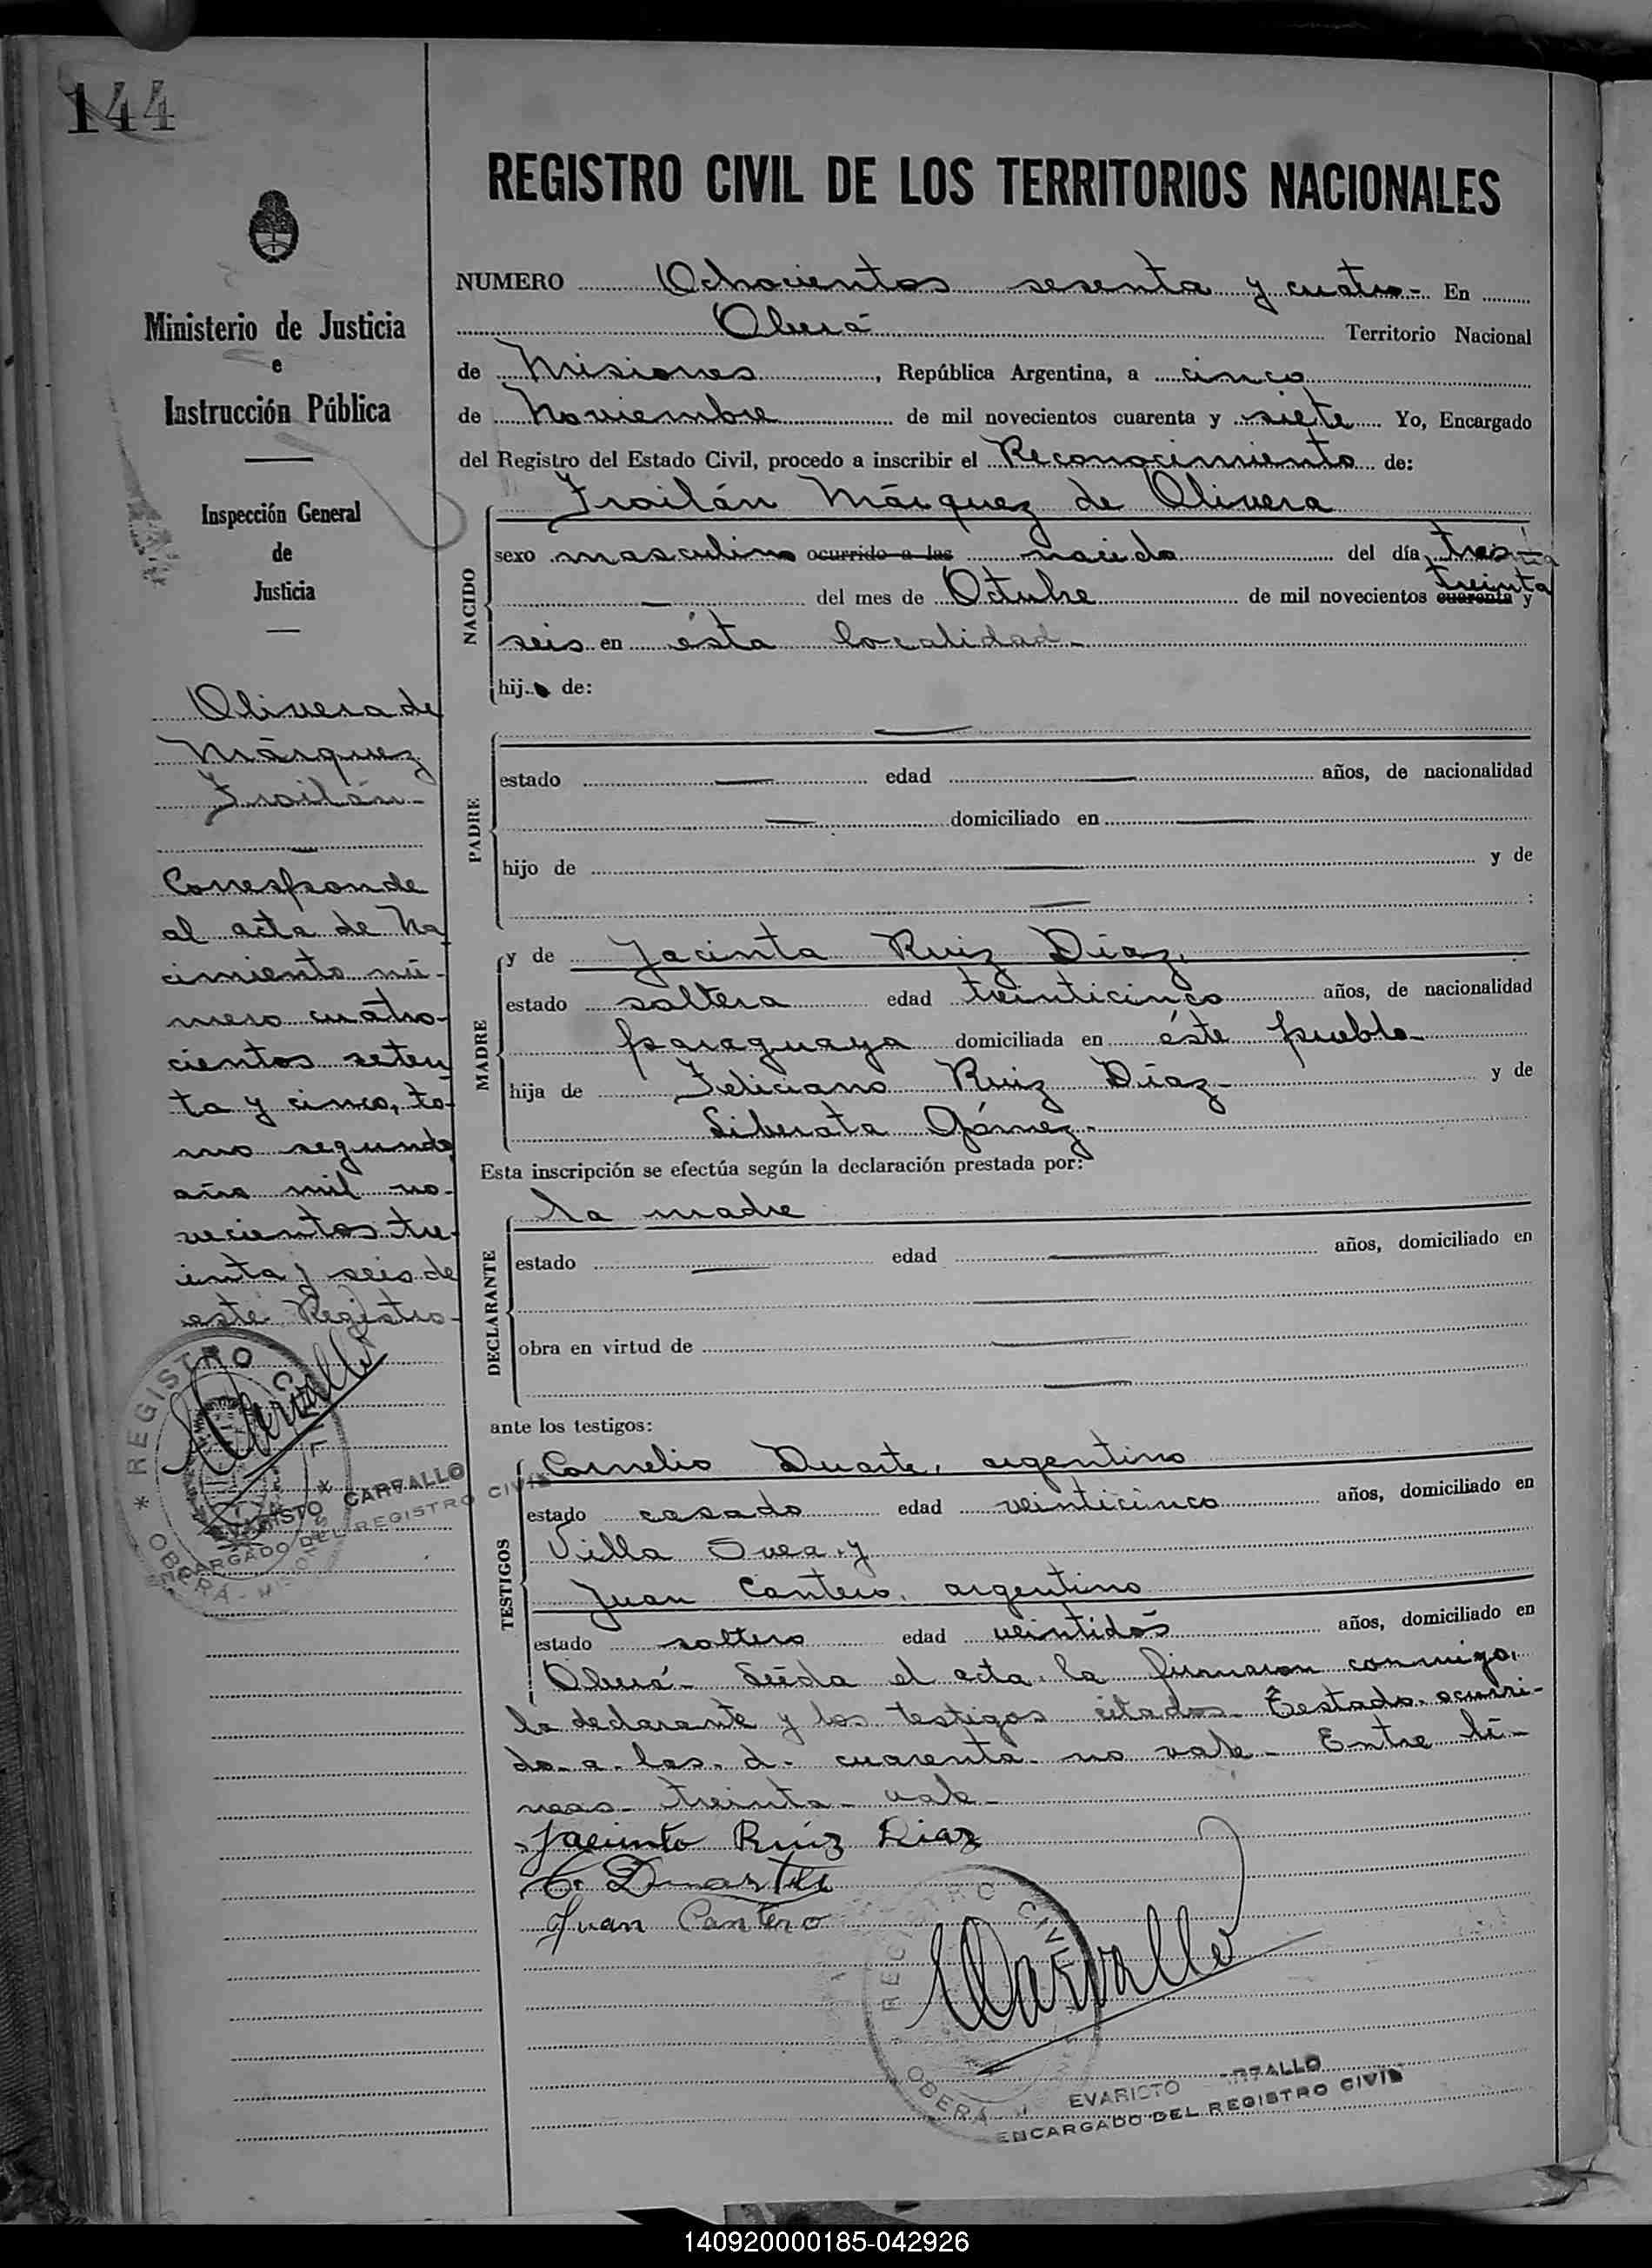 144
REGISTRO CIVIL DE LOS TERRITORIOS NACIONALES
Ministerio de Justicia
e
Instrucción Pública
Inspección General
de
Justicia
Olivera de
Márquez
Froilán-
Corresponde
al acta de Na
cimiento nú-
mero cuatro-
cientos seten
ta y cinco, to-
mo segundo
año mil no-
vecientos tre-
inta y seis de
este Registro-
REGISTRO CIVIL
OBERÁ - MISIONES
CARVALLO
ENCARGADO DEL REGISTRO CIVIL
NUMERO Ochocientos sesenta y cuatro- En
Oberá Territorio Nacional
de Misiones, República Argentina, a cinco
de Noviembre de mil novecientos cuarenta y siete Yo, Encargado
del Registro del Estado Civil, procedo a inscribir el Reconocimiento de:
Froilán Márquez de Olivera
NACIDO
sexo masculino ocurrido a las nacido del día tres
— del mes de Octubre de mil novecientos cuarenta treinta y
seis en ésta localidad-
hijo de:
PADRE
estado — edad — años, de nacionalidad
— domiciliado en —
hijo de — y de
— :
MADRE
y de Jacinta Ruiz Díaz,
estado soltera edad treinticinco años, de nacionalidad
paraguaya domiciliada en éste pueblo-
hija de Feliciano Ruiz Díaz- y de
Liberata Gómez-
Esta inscripción se efectúa según la declaración prestada por:
DECLARANTE
la madre
estado — edad — años, domiciliado en
obra en virtud de —
ante los testigos:
TESTIGOS
Cornelio Duarte, argentino
estado casado edad veinticinco años, domiciliado en
Villa Svea, y
Juan Cantero, argentino
estado soltero edad veintidós años, domiciliado en
Oberá- Leída el acta, la firmaron conmigo,
la declarante y los testigos citados- Testado- ocurri-
do- a- las- d- cuarenta- no vale- Entre lí-
neas- treinta- vale-
Jacinto Ruíz Diaz
C. Duarte
Juan Cantero
REGISTRO CIVIL
OBERÁ
Carvallo
EVARISTO CARVALLO
ENCARGADO DEL REGISTRO CIVIL
140920000185-042926